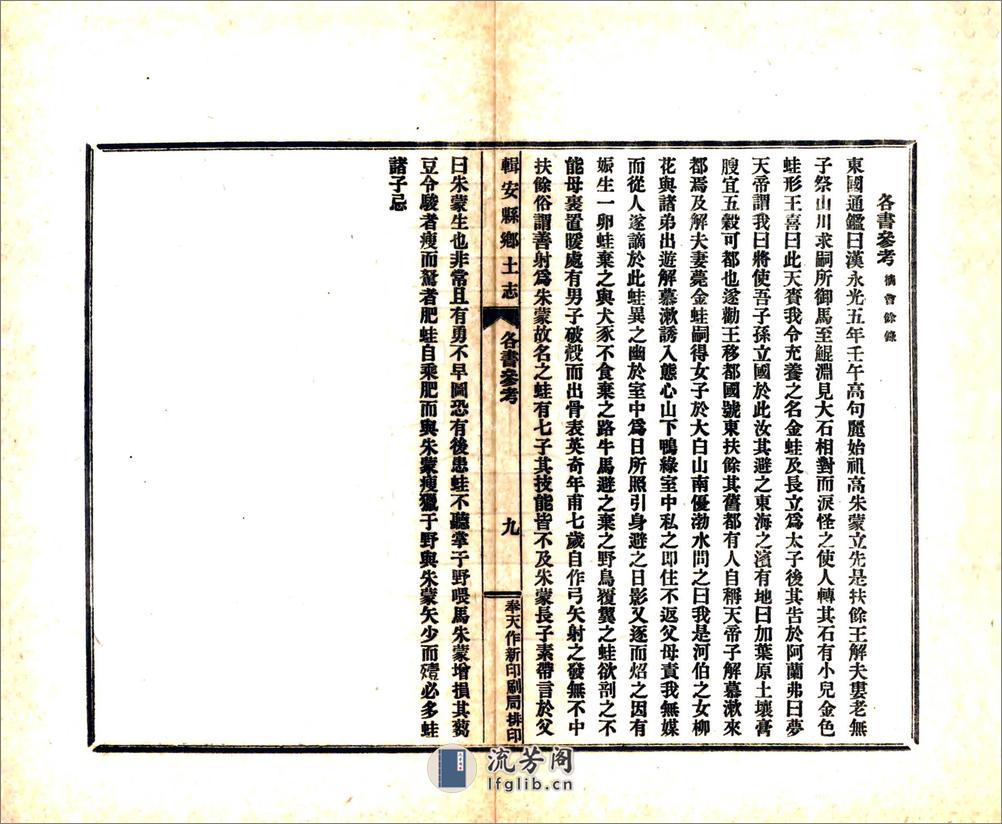 各書參考
東國通鑑曰漢永光五年壬午高句麗始祖高朱蒙立先是扶餘王解夫婁老無
子祭山川求嗣所御馬至鯤淵見大石相對而淚怪之使人轉其石有小兒金色
蛙形王喜曰此天賚我令充養之名金蛙及長立爲太子後其吿於阿蘭弗曰夢
天帝謂我曰將使吾子孫立國於此汝其避之東海之濱有地曰加葉原土壤膏
腴宜五穀可都也遂勸王移都國號東扶餘其舊都有人自稱天帝子解慕漱來
都焉及解夫妻薨金蛙嗣得女子於大白山南優渤水問之曰我是河伯之女柳
花與諸弟出遊解慕漱誘入態心山下鴨綠室中私之即住不返父母責我無媒
而從人遂謫於此蛙異之幽於室中爲日所照引身避之日影又逐而炤之因有
娠生一卵蛙棄之與犬豕不食棄之路牛馬避之棄之野鳥覆翼之蛙欲剖之不
能母裹置暖處有男子破殼而出骨表英奇年甫七歲自作弓矢射之發無不中
扶餘俗謂善射爲朱蒙故名之蛙有七子其技能皆不及朱蒙長子素帶言於父
輯安縣鄉土志
各書參考
九
奉天作新印刷局排印
曰朱蒙生也非常且有勇不早圖恐有後患蛙不聽掌于野喂馬朱蒙增損其蒭
豆令駿者瘦而駑者肥蛙自乘肥而與朱蒙瘦獵于野與朱蒙矢少而殪必多蛙
諸子忌
流芳阁
lfglib.cn